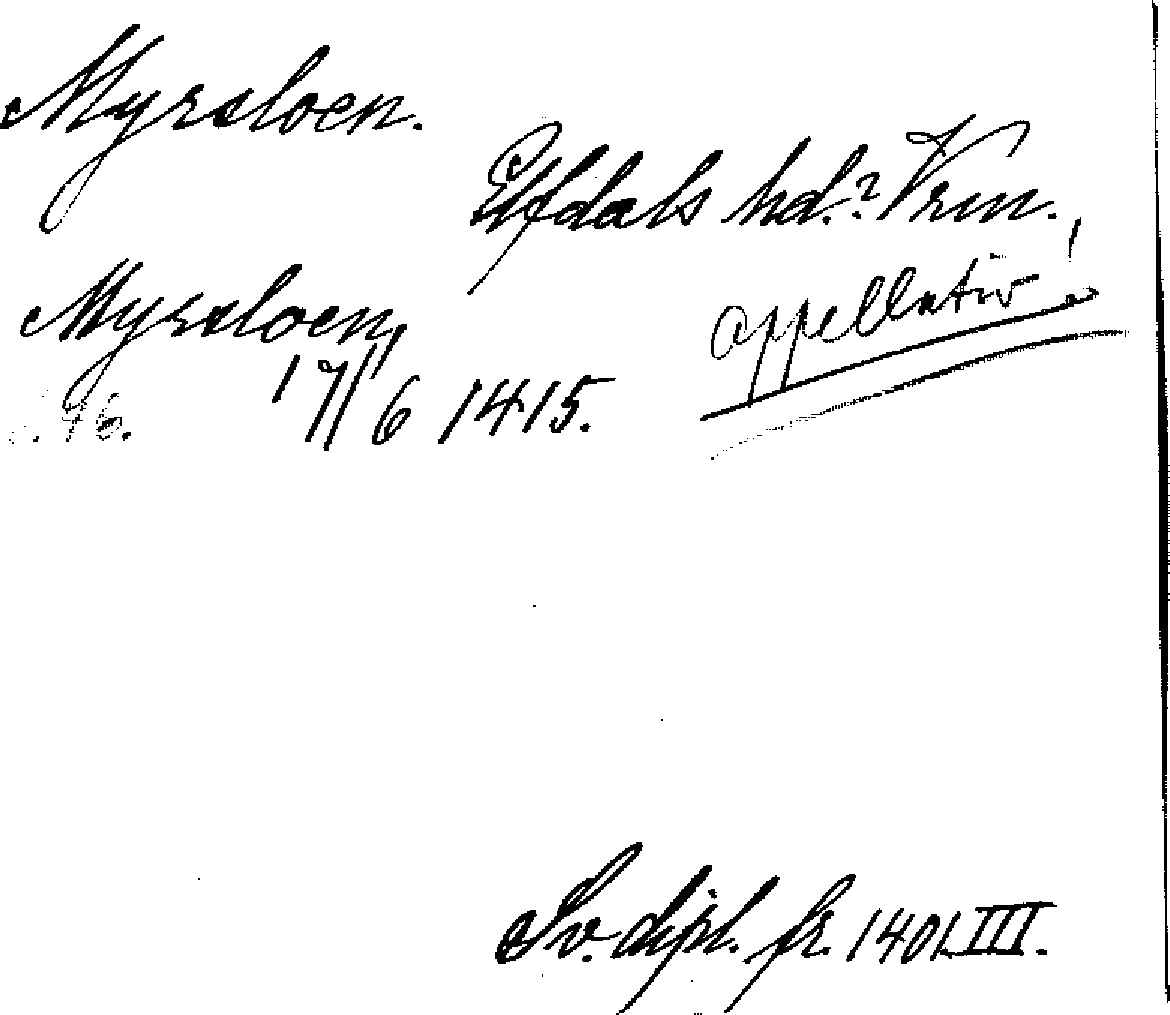 Myrsloen.
Elfdals hd.? Vrm.
appellativ!
Myrsloen,
17/6 1415.
Sv. dipl. fr. 1401 III.